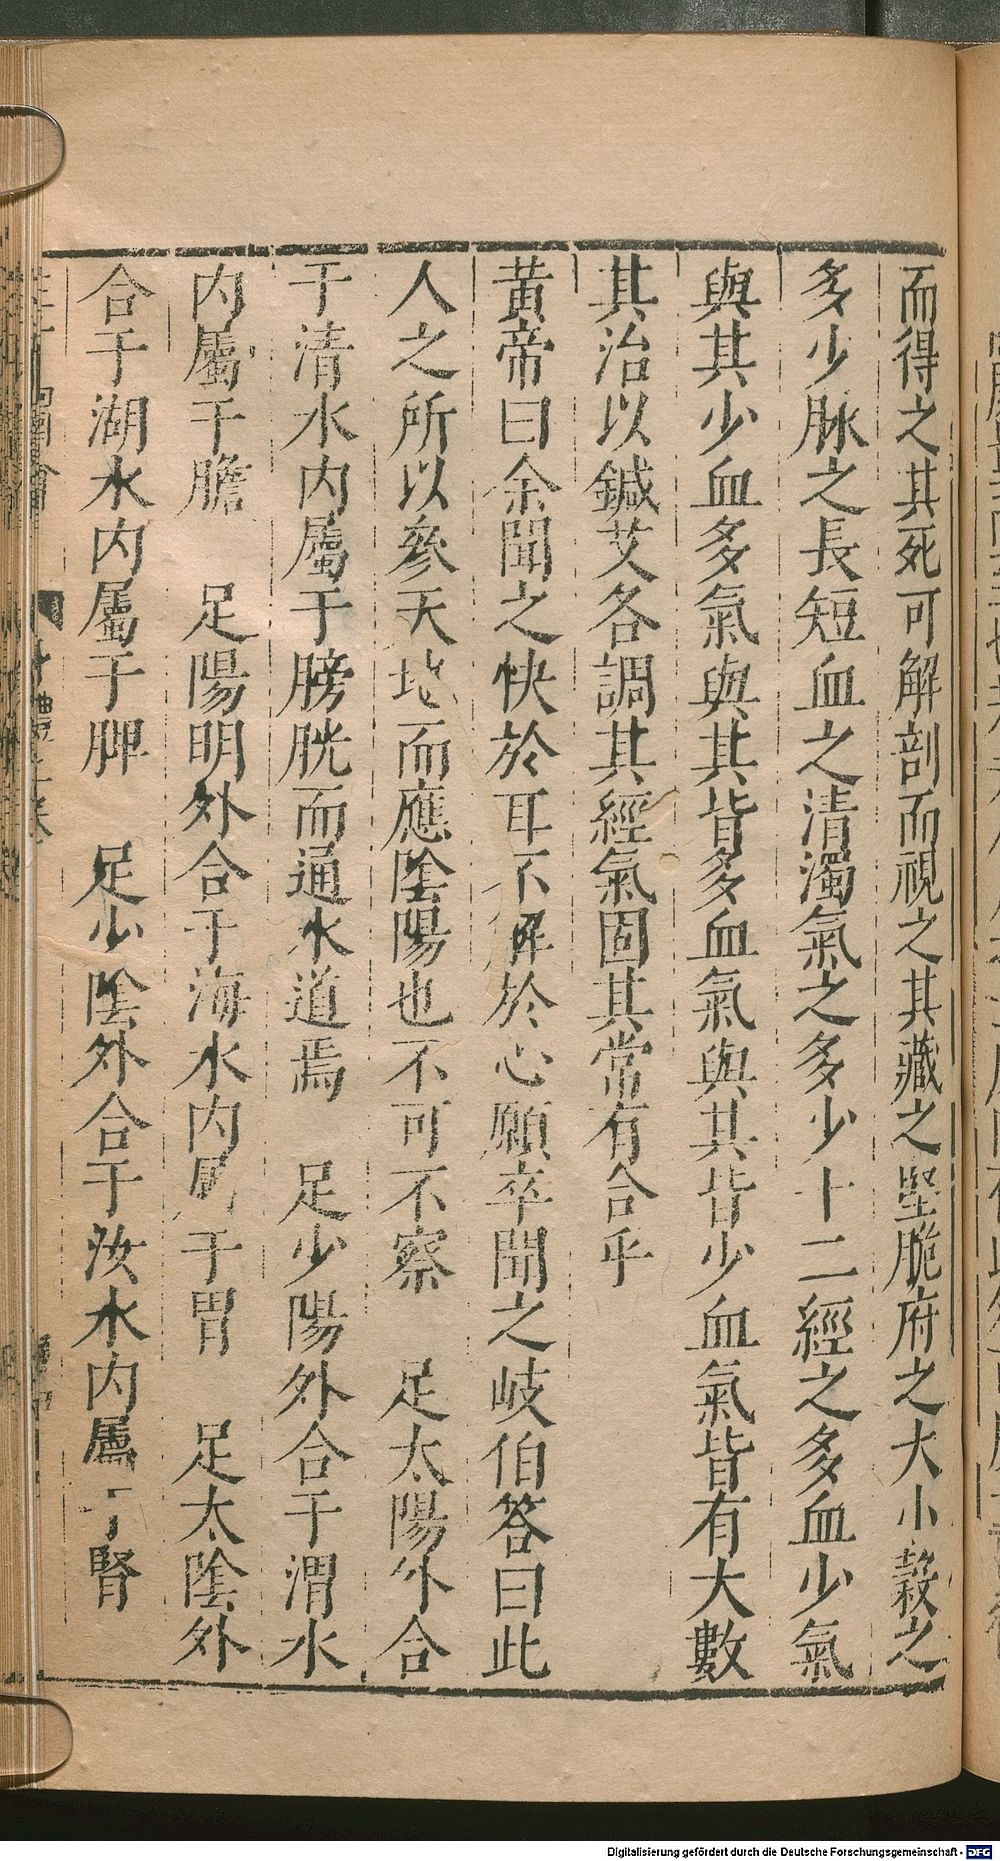 而得之其死可解剖而視之其藏之堅脆府之大小穀之
多少脉之長短血之清濁氣之多少十二經之多血少氣
與其少血多氣與其皆多血氣與其皆少血氣皆有大數
其治以鍼艾各調其經氣固其常有合乎
黃帝曰余聞之快於耳不解於心願卒聞之岐伯答曰此
人之所以參天地而應陰陽也不可不察　足太陽外合
于清水内屬于膀胱而通水道焉　足少陽外合于渭水
内屬于膽　足陽明外合于海水内屬于胃　足太陰外
合于湖水内屬于脾　足少陰外合于汝水内屬于腎
Digitalisierung gefördert durch die Deutsche Forschungsgemeinschaft - DFG